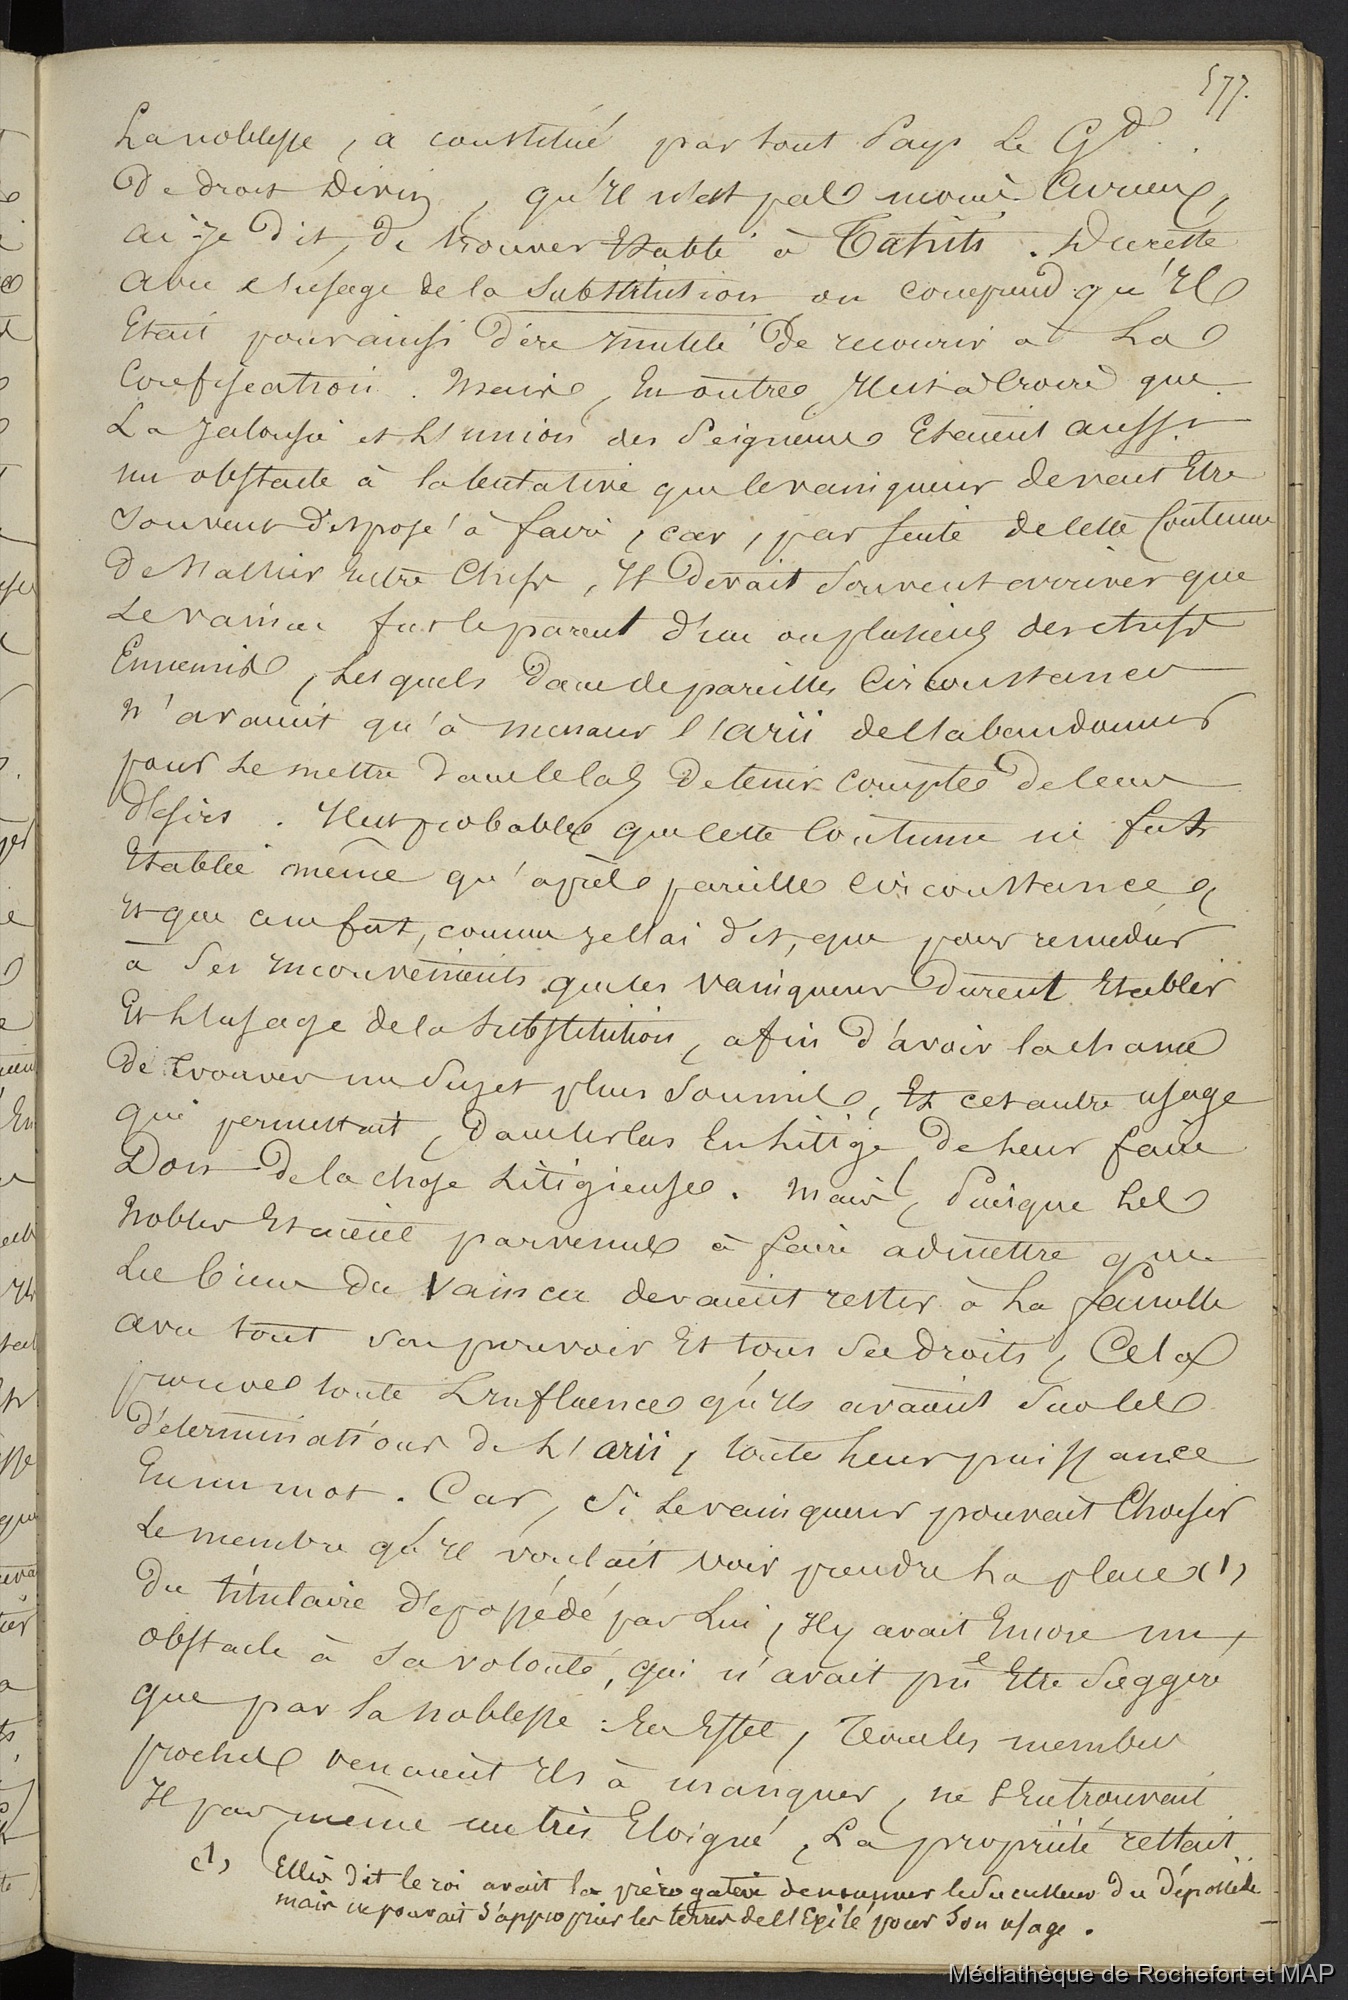 577.
La noblesse, a constitué par tout Pays le Gd.
De droit Divin, qu'Il n'est pas moins Curieux,
ai-je dit, de trouver Etabli à Tahiti. Dureste
avec l'usage de la Substitution on comprend qu'Il
Etait pour ainsi dire Inutile de recourir à La
Confiscation. Mais, En outre, Il est à Croire que
La Jalousie et L'union des Seigneurs Etaient aussi
un obstacle à la tentative que le vainqueur devait Etre
souvent disposé à faire, car, par suite de cette Coutume
De s'allier Entre Chefs, Il devait souvent arriver que
Le vaincu fut le parent d'un ou plusieurs des chefs
Ennemis, Lesquels dans de pareilles Circonstances
N'avaient qu'à menacer l'arii de l'abandonner
pour Le mettre dans le cas De tenir Compte de leurs
désirs. Il est probable que cette Coutume ne fut
Etablie même qu'après pareilles circonstances,
Et que ce ne fut, comme je l'ai dit, que pour remédier
à ses Inconvénients que les vainqueurs Durent Etablir
Et L'usage de la Substitution, afin d'avoir la chance
De trouver un Sujet plus soumis, Et cet autre usage
qui permettait, dans les cas En Litige, De Leur faire
Don De la chose Litigieuse. Mais, Puisque Les
Nobles Etaient parvenus à faire admettre que
Les biens du Vaincu devaient rester à La famille
avec tout son pouvoir Et tous ses droits, Cela
prouve toute L'Influence qu'Ils avaient sur les
déterminations de L'arii, toute Leur puissance
En un mot. Car, si Le vainqueur pouvait Choisir
Le membre qu'Il voulait voir prendre La place (1)
Du titulaire dépossédé par Lui, Il y avait Encore un
obstacle à sa volonté, qui n'avait pu Etre suggéré
que par la noblesse : En Effet, Tous les membres
proches venaient Ils à manquer, ne s'En trouvait
Il pas même un très Eloigné, La propriété restait
(1) Ellis dit le roi avait la prérogative de nommer le Successeur du dépossédé
mais ne pouvait s'approprier les terres de l'Exilé pour son usage.
Médiathèque de Rochefort et MAP